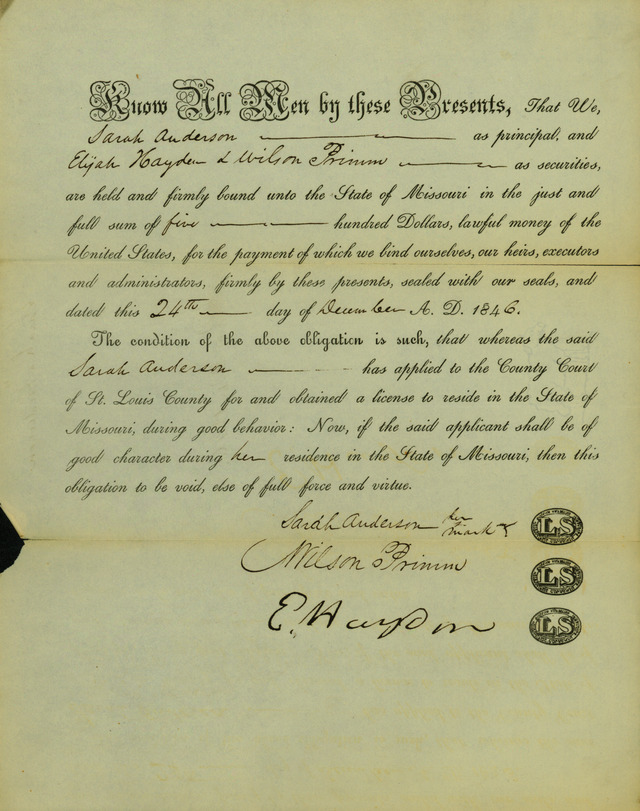 Know All Men by these Presents, That We,
Sarah Anderson as principal, and
Elijah Hayden & Wilson Primm as securities,
are held and firmly bound unto the State of Missouri in the just and
full sum of five hundred Dollars, lawful money of the
United States, for the payment of which we bind ourselves, our heirs, executors
and administrators, firmly by these presents, sealed with our seals, and
dated this 24th day of December A. D. 1846.
The condition of the above obligation is such, that whereas the said
Sarah Anderson has applied to the County Court
of St. Louis County for and obtained a license to reside in the State of
Missouri, during good behavior: Now, if the said applicant shall be of
good character during her residence in the State of Missouri, then this
obligation to be void, else of full force and virtue.
Sarah Anderson her mark x LS
Wilson Primm LS
E. Haydon LS